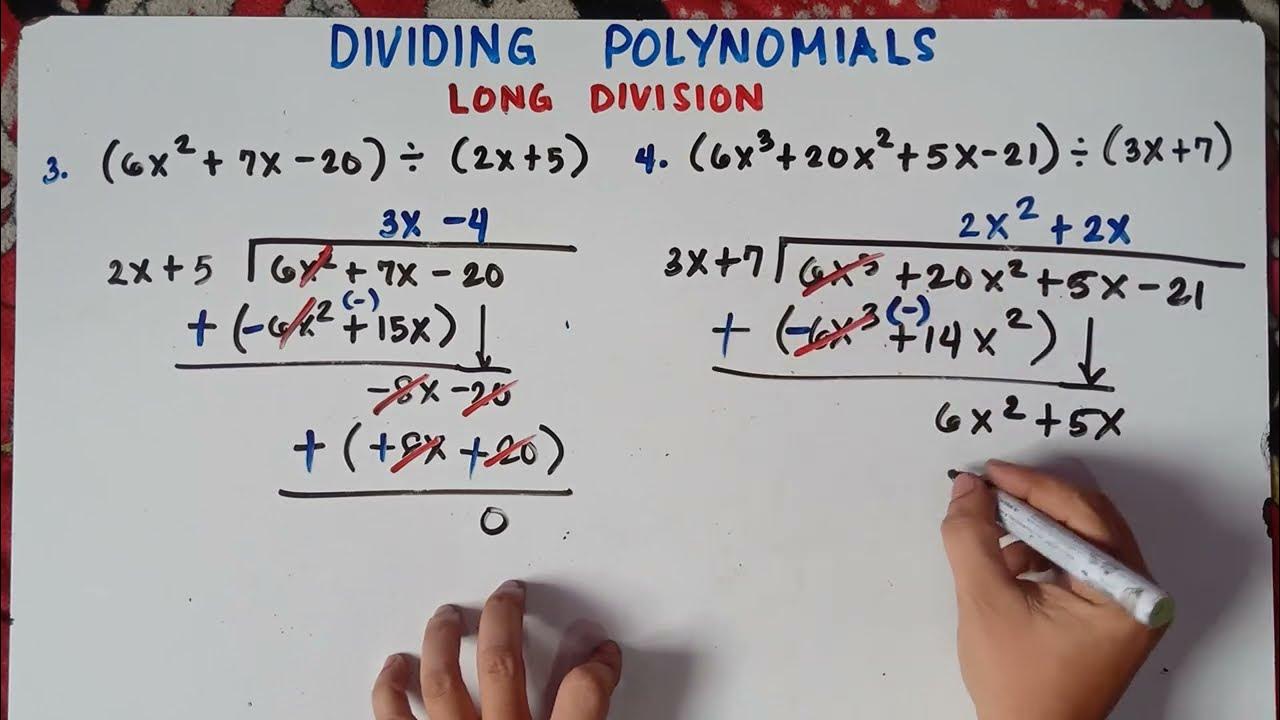 DIVIDING POLYNOMIALS
LONG DIVISION
3. (6x² + 7x - 20) ÷ (2x + 5)
3x - 4
2x + 5 6x² + 7x - 20
+ (-6x² + 15x)
(-)
-8x - 20
+ (+8x + 20)
0
4. (6x³ + 20x² + 5x - 21) ÷ (3x + 7)
2x² + 2x
3x + 7 6x³ + 20x² + 5x - 21
+ (-6x³ + 14x²)
(-)
6x² + 5x